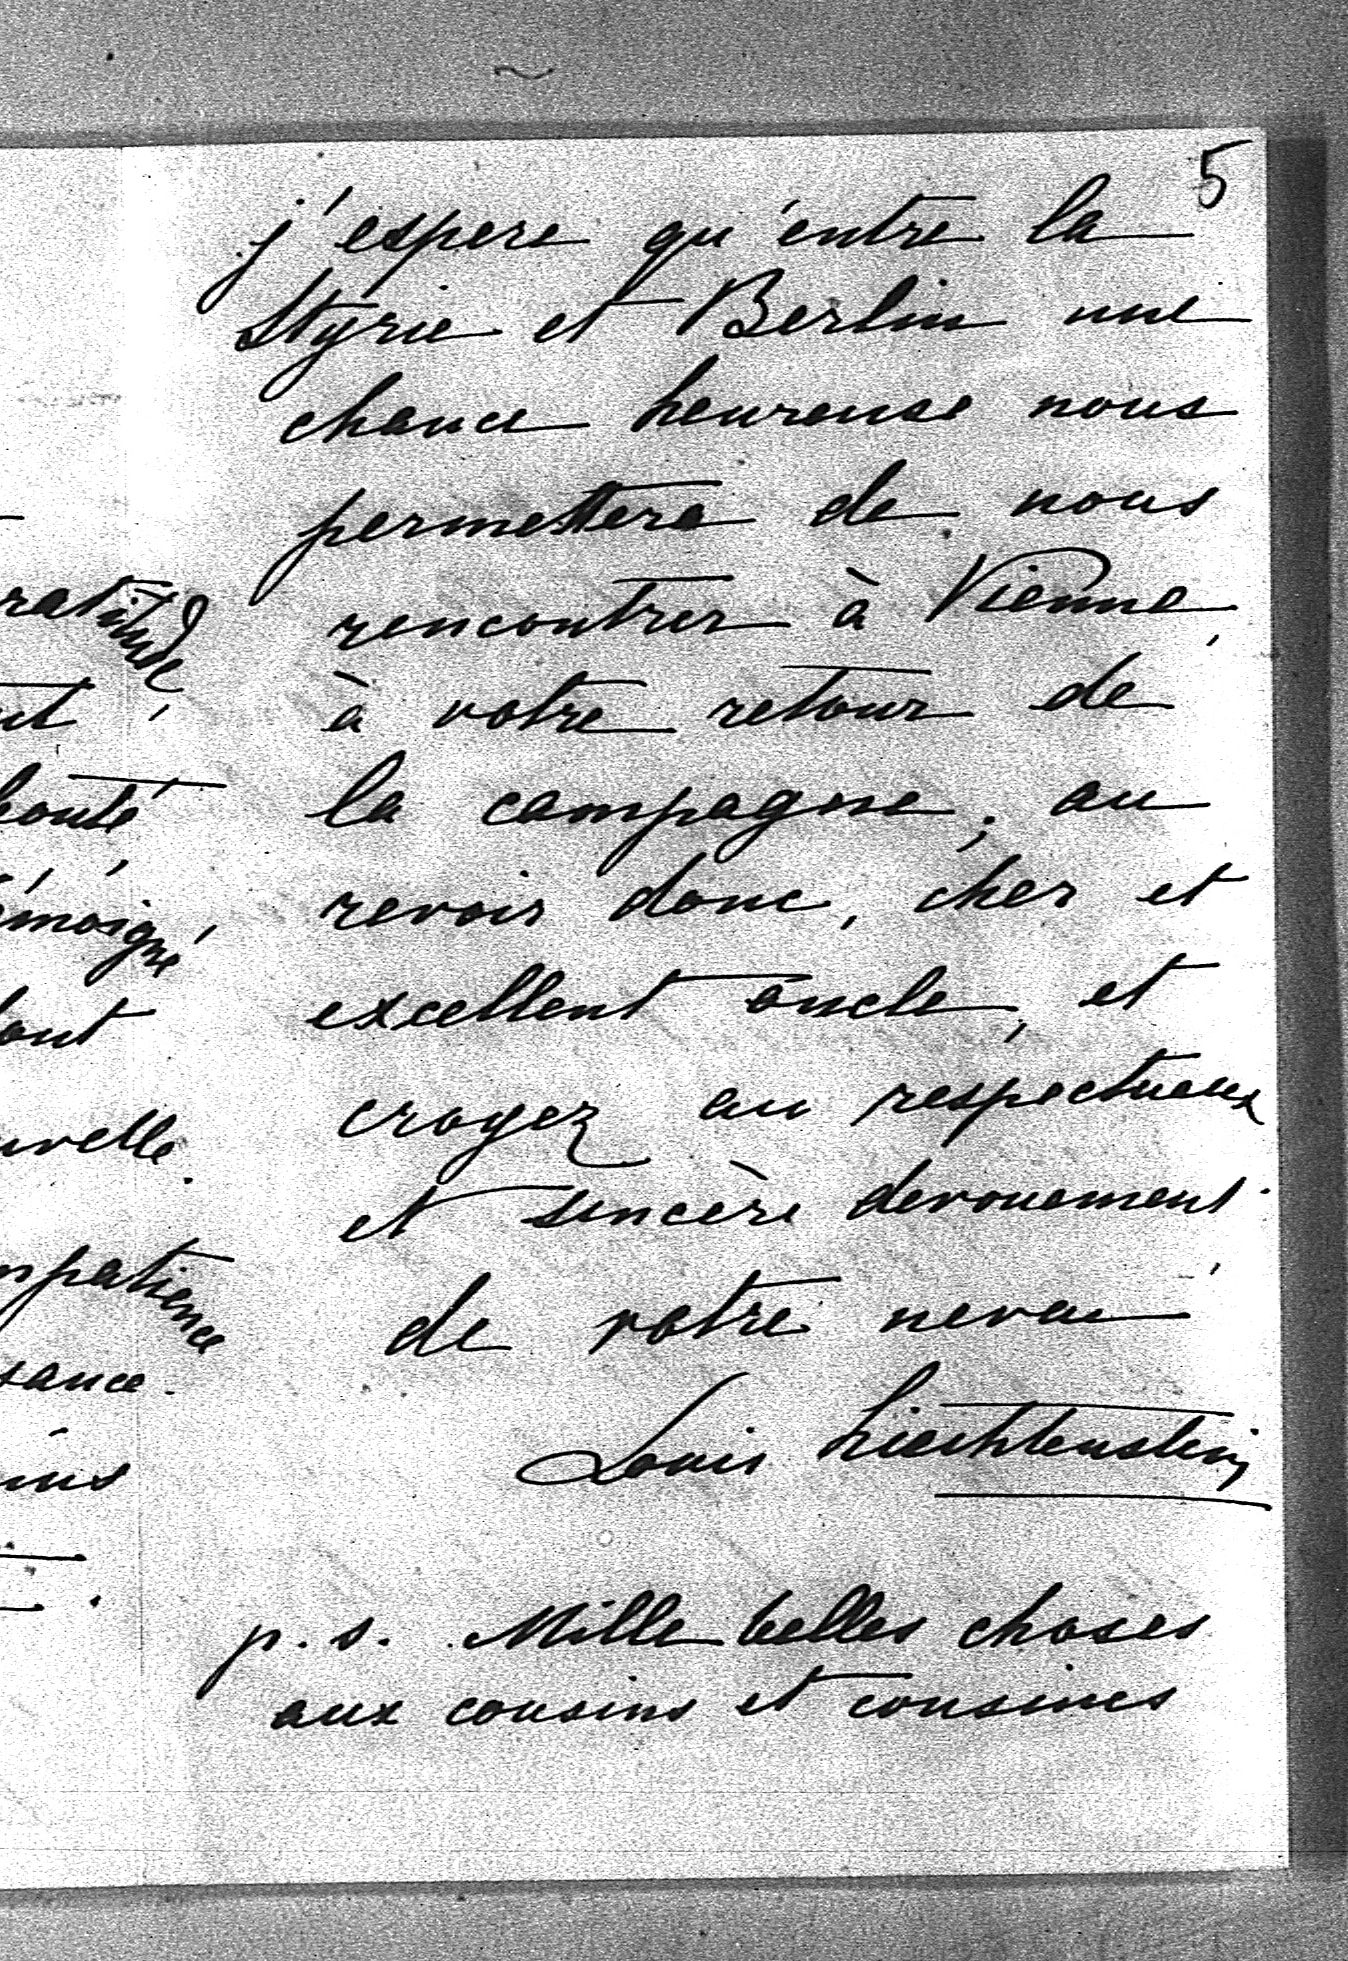 5
j'espere qu'entre la
Styrie et Berlin une
chance heureuse nous
permettera de nous
rencontrer à Vienne,
à votre retour de
la campagne; au
revoir donc, cher et
excellent oncle, et
croyez au respectueux
et sincère devouement
de votre neveu
Louis Liechtenstein
p. s. Mille belles choses
aux cousins et cousines
ratitude
bonté
émoigné
uvelle.
mpatience
sance.